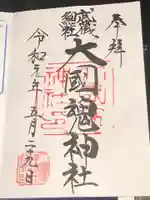 奉拝
武蔵
總社
大國魂神社
令和元年五月二十九日